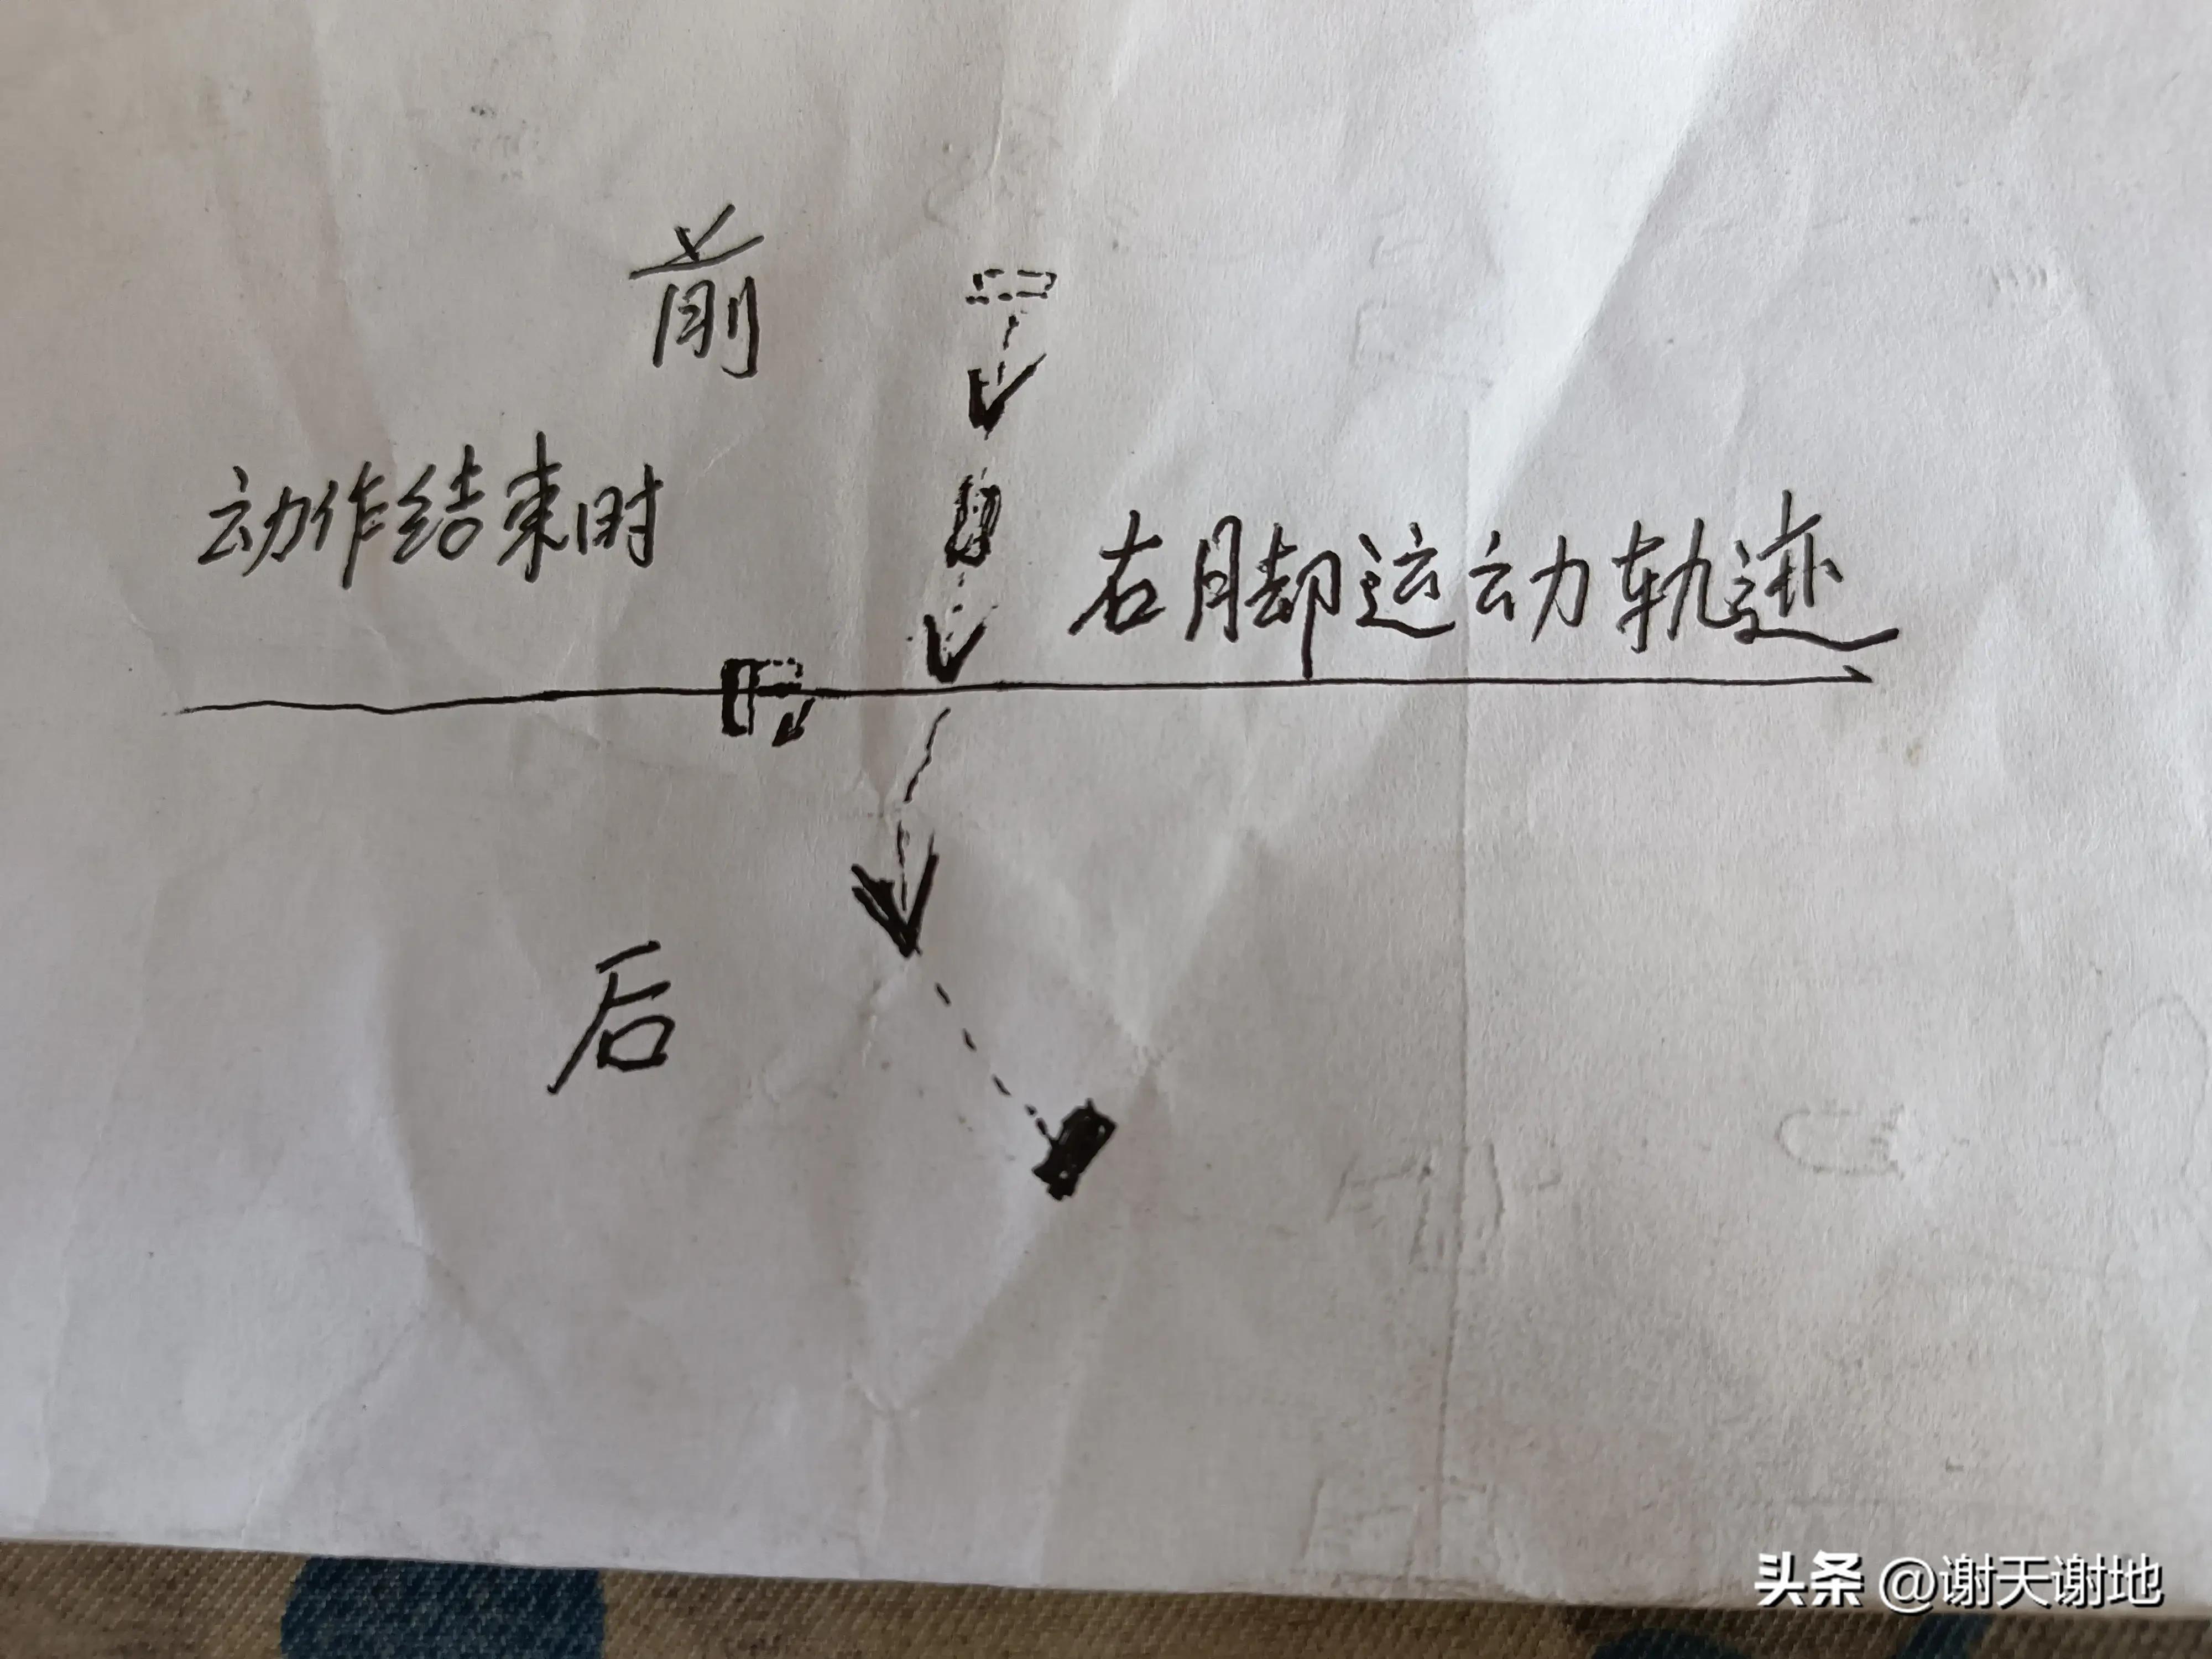 前
动作结束时
右脚运动轨迹
后
头条 @谢天谢地